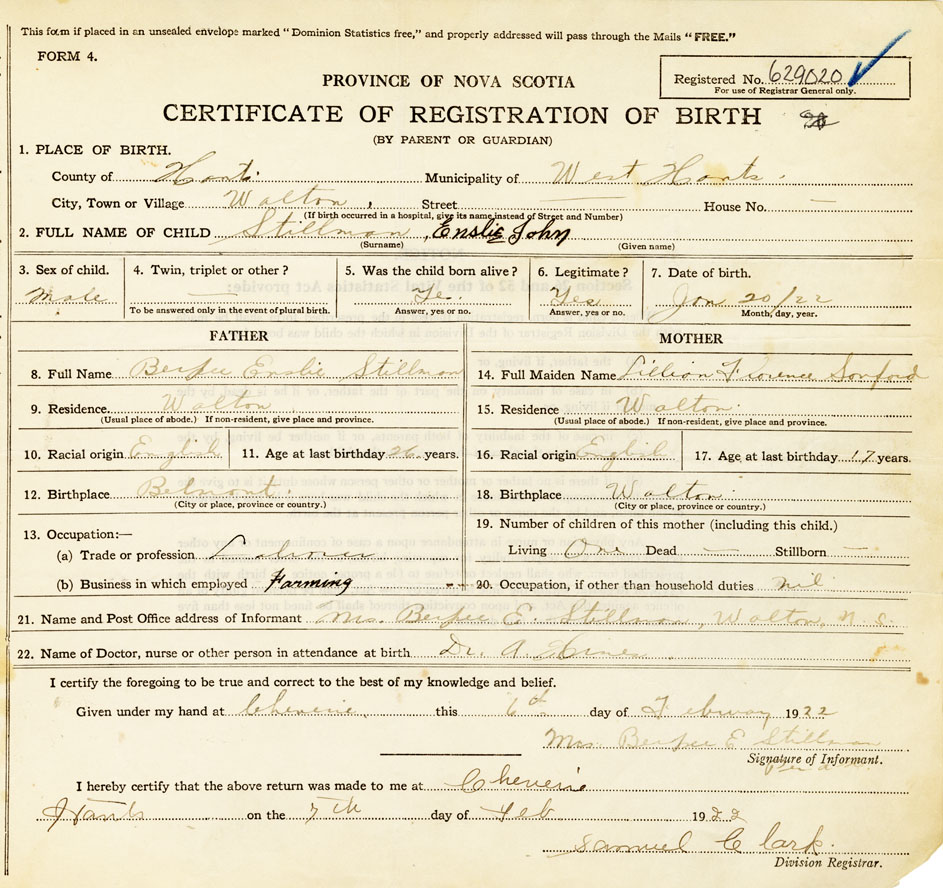 This form if placed in an unsealed envelope marked "Dominion Statistics free," and properly addressed will pass through the Mails "FREE."
FORM 4.
Registered No. 629020
For use of Registrar General only.
PROVINCE OF NOVA SCOTIA
CERTIFICATE OF REGISTRATION OF BIRTH
(BY PARENT OR GUARDIAN)
1. PLACE OF BIRTH.
County of Hants Municipality of West Hants
City, Town or Village Walton, Street — House No. —
(If birth occurred in a hospital, give its name instead of Street and Number)
2. FULL NAME OF CHILD Stillman, Enslie John
(Surname) (Given name)
3. Sex of child. 4. Twin, triplet or other? 5. Was the child born alive? 6. Legitimate? 7. Date of birth.
Male — Yes Yes Jan 20/22
To be answered only in the event of plural birth. Answer, yes or no. Answer, yes or no. Month, day, year.
FATHER
8. Full Name Burpee Enslie Stillman
9. Residence. Walton
(Usual place of abode.) If non-resident, give place and province.
10. Racial origin English 11. Age at last birthday 26 years.
12. Birthplace Belmont
(City or place, province or country.)
13. Occupation:—
(a) Trade or profession Laborer
(b) Business in which employed Farming
MOTHER
14. Full Maiden Name Lillian Florence Sanford
15. Residence Walton
(Usual place of abode.) If non-resident, give place and province.
16. Racial origin English 17. Age at last birthday 17 years.
18. Birthplace Walton
(City or place, province or country.)
19. Number of children of this mother (including this child.)
Living One Dead — Stillborn —
20. Occupation, if other than household duties nil
21. Name and Post Office address of Informant Mrs. Burpee E. Stillman, Walton, N.S.
22. Name of Doctor, nurse or other person in attendance at birth Dr. A
I certify the foregoing to be true and correct to the best of my knowledge and belief.
Given under my hand at Cheverie, this 6th day of February 1922
Mrs Burpee E Stillman
Signature of Informant.
I hereby certify that the above return was made to me at Cheverie
Hants on the 7th day of Feb 1922
Samuel Clark.
Division Registrar.